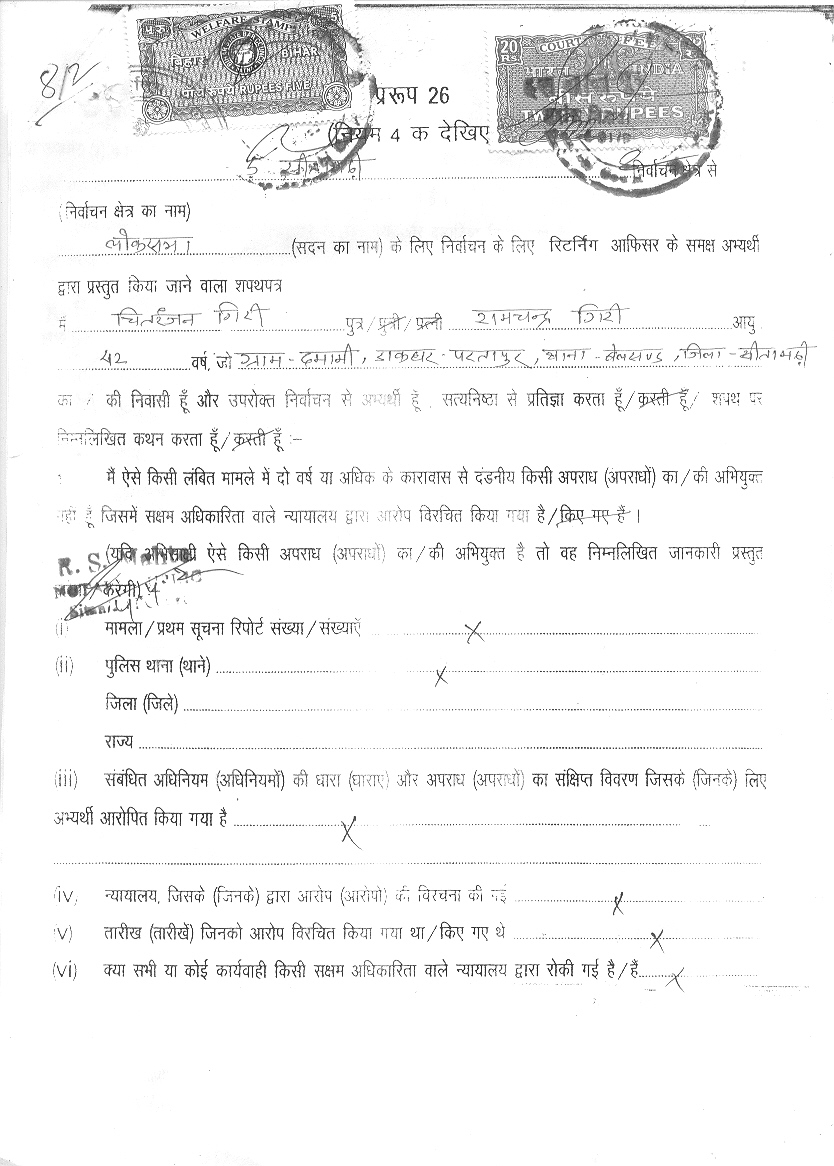 8/2
WELFARE STAMP
बिहार BIHAR
पांच रुपये RUPEES FIVE
20 Rs COURT FEE
भारत INDIA
बीस रुपये
TWENTY RUPEES
प्ररूप 26
(नियम 4 क देखिए
निर्वाचन क्षेत्र से
(निर्वाचन क्षेत्र का नाम)
लोकसभा (सदन का नाम) के लिए निर्वाचन के लिए रिटर्निंग आफिसर के समक्ष अभ्यर्थी
द्वारा प्रस्तुत किया जाने वाला शपथपत्र
मैं चितरंजन गिरी पुत्र/पुत्री/पत्नी रामचन्द्र गिरी आयु
42 वर्ष, जो ग्राम-दमामी, डाकघर-परतापुर, थाना-बेलसण्ड, जिला-सीतामढ़ी
का / की निवासी हूँ और उपरोक्त निर्वाचन से अभ्यर्थी हूँ, सत्यनिष्ठा से प्रतिज्ञा करता हूँ/करती हूँ/ शपथ पर
निम्नलिखित कथन करता हूँ/करती हूँ :–
मैं ऐसे किसी लंबित मामले में दो वर्ष या अधिक के कारावास से दंडनीय किसी अपराध (अपराधों) का/की अभियुक्त
नहीं हूँ जिसमें सक्षम अधिकारिता वाले न्यायालय द्वारा आरोप विरचित किया गया है/किए गए हैं ।
(यदि अभिसाक्षी ऐसे किसी अपराध (अपराधों) का/की अभियुक्त है तो वह निम्नलिखित जानकारी प्रस्तुत
करेगी)
R. S.
(i) मामला/प्रथम सूचना रिपोर्ट संख्या/संख्याएँ X
(ii) पुलिस थाना (थाने) X
जिला (जिले)
राज्य
(iii) संबंधित अधिनियम (अधिनियमों) की धारा (धाराए) और अपराध (अपराधों) का संक्षिप्त विवरण जिसके (जिनके) लिए
अभ्यर्थी आरोपित किया गया है X
(iv) न्यायालय, जिसके (जिनके) द्वारा आरोप (आरोपो) की विरचना की गई X
(v) तारीख (तारीखें) जिनको आरोप विरचित किया गया था/किए गए थे X
(vi) क्या सभी या कोई कार्यवाही किसी सक्षम अधिकारिता वाले न्यायालय द्वारा रोकी गई है/हैं X